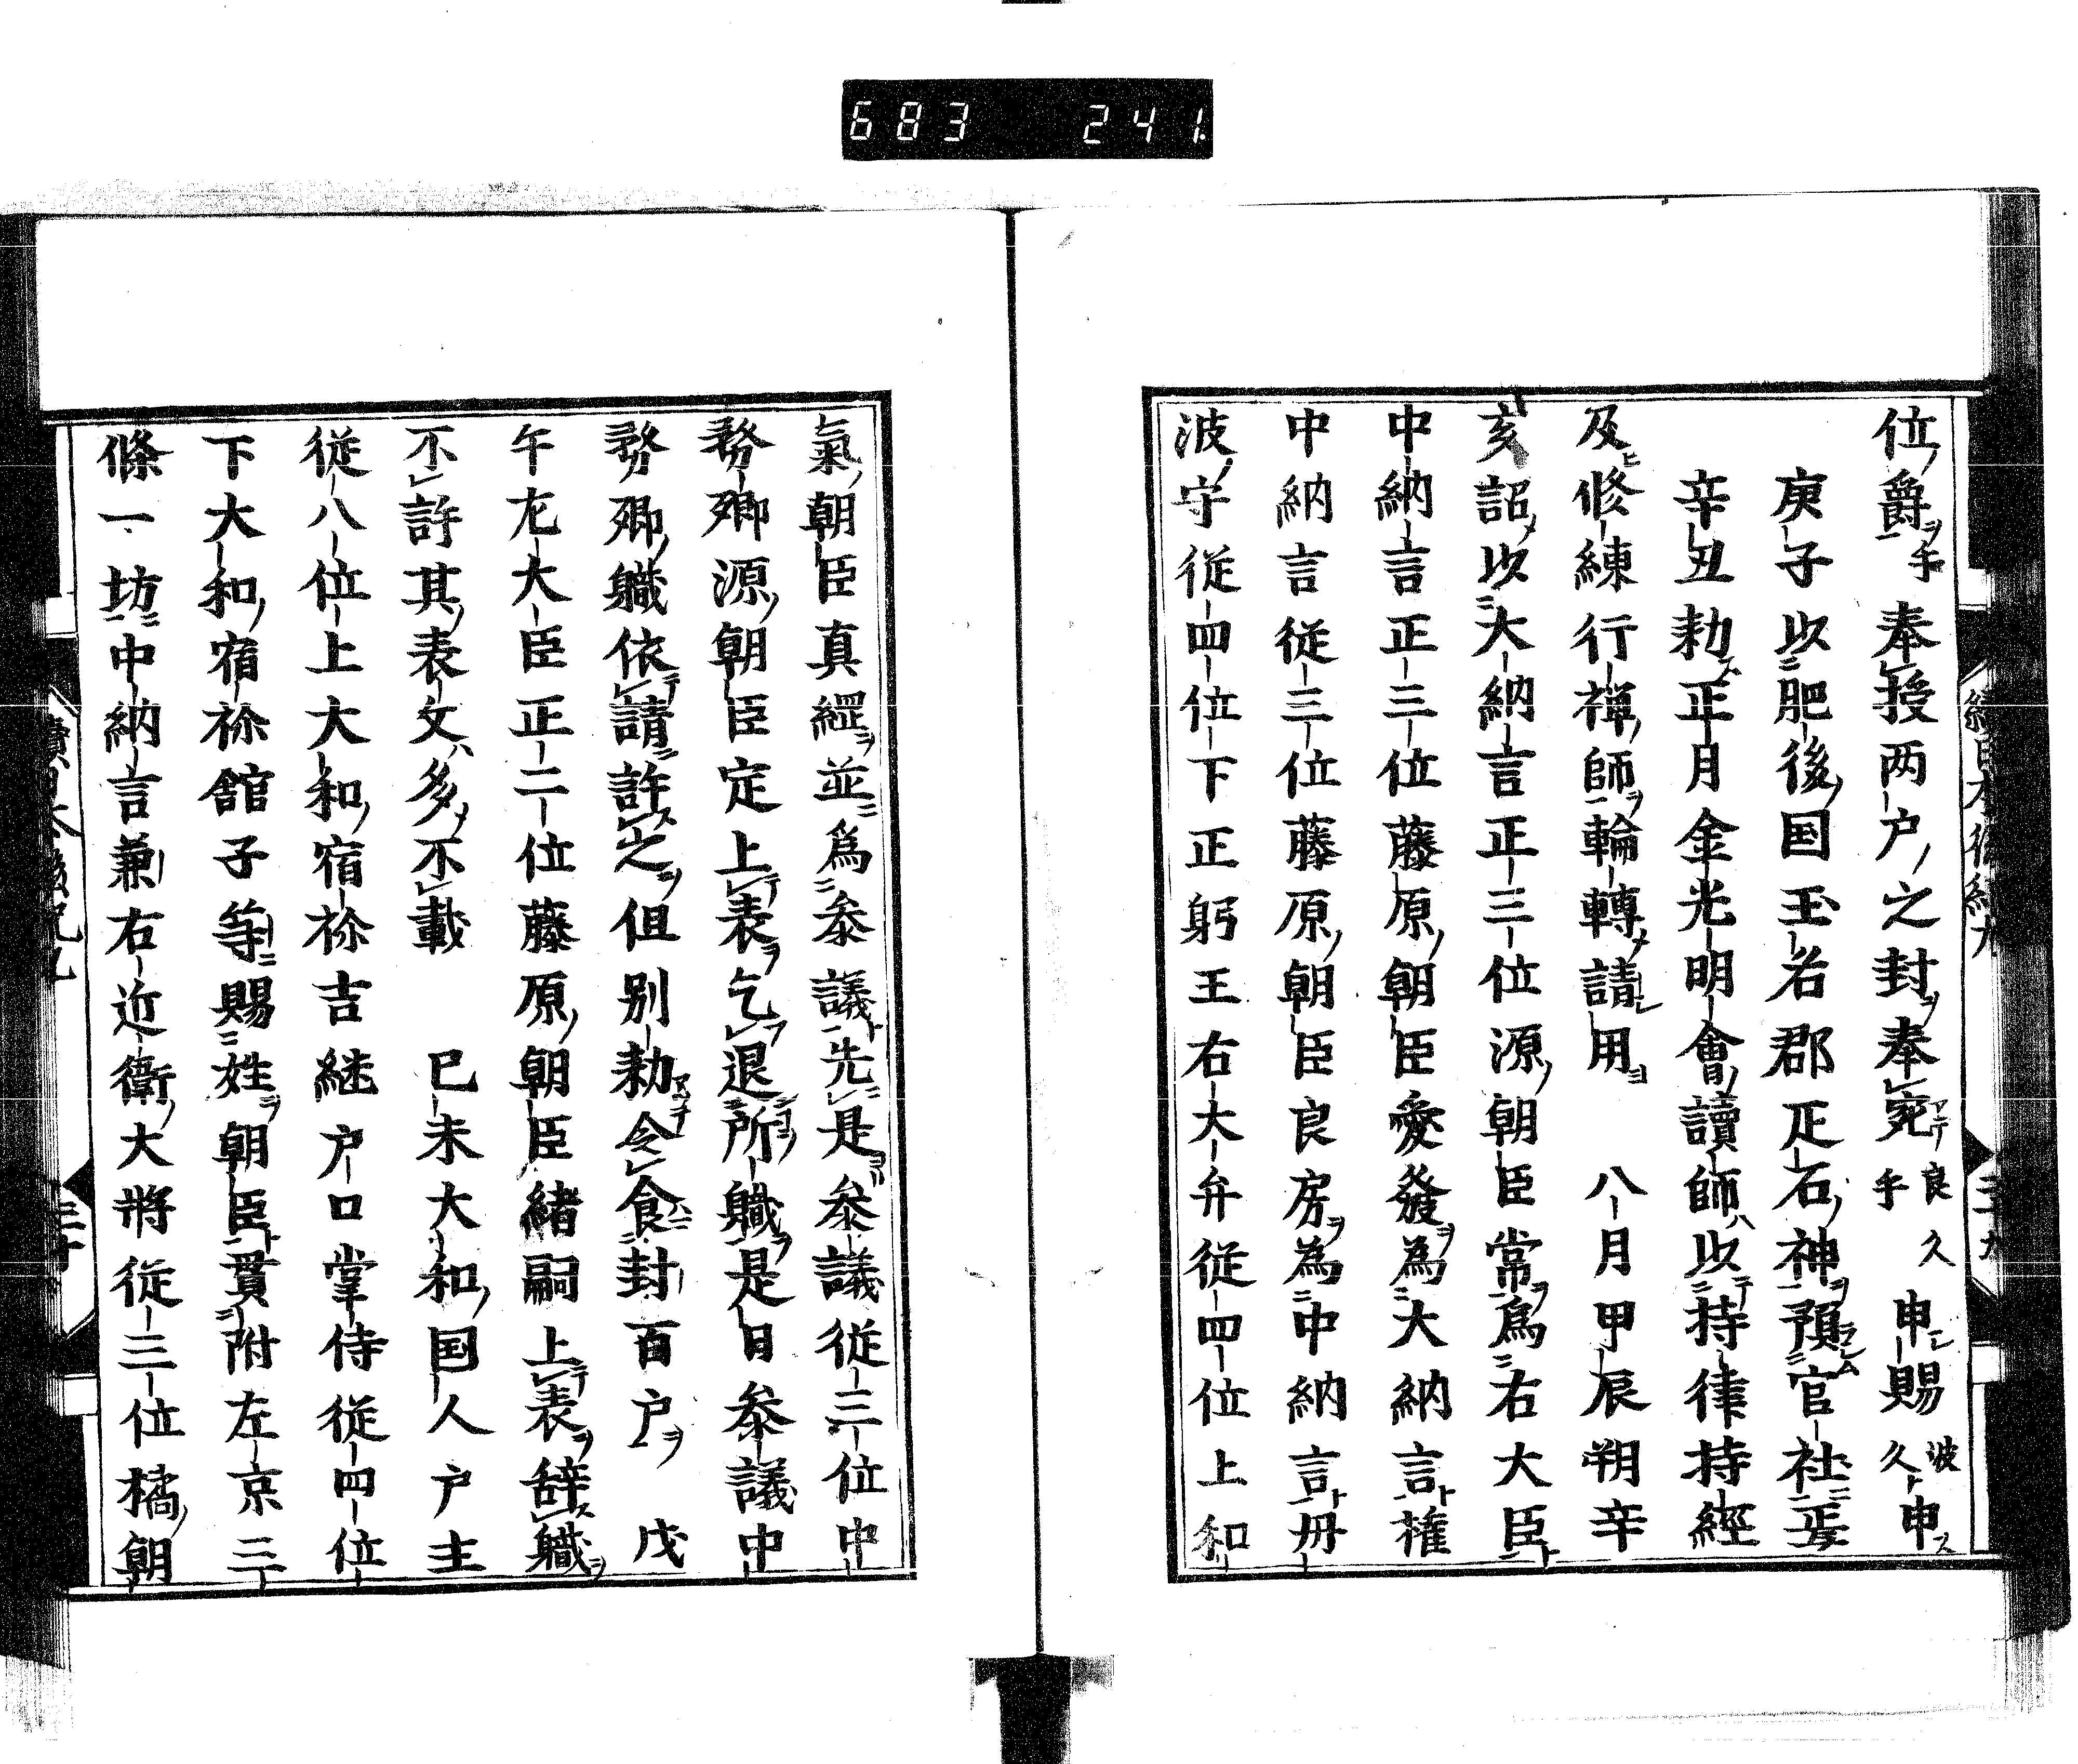 683 241
位爵乎奉授两户之封奉宛良久乎申賜波久申
庚子以肥後国玉名郡疋石神預官社焉
辛丑勅正月金光明會讀師以持律持經
及修練行禅師輪轉請用 八月甲辰朔辛
亥詔以大納言正三位源朝臣常爲右大臣
中納言正三位藤原朝臣愛發為大納言權
中納言従三位藤原朝臣良房為中納言丹
波守従四位下正躬王右大弁従四位上和
氣朝臣真綱並爲参議先是参議従三位中
務卿源朝臣定上表乞退所職是日参議中
務卿職依請許之但别勅令食封百户 戊
午左大臣正二位藤原朝臣緒嗣上表辞職
不許其表文多不載 已未大和国人户主
従八位上大和宿祢吉継户口掌侍従四位
下大和宿祢舘子等賜姓朝臣貫附左京三
條一坊中納言兼右近衛大將従三位橘朝